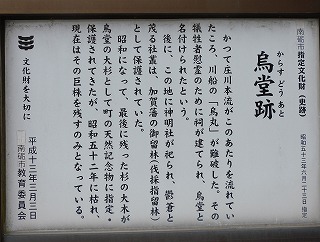 南砺市指定文化財（史跡）
からすどうあと
烏堂跡
昭和五十三年六月二十三日指定
かつて庄川本流がこのあたりを流れてい
たころ、川船の「烏丸」が難破した。その
犠牲者慰霊のために祠が建てられ、烏堂と
名付けられたという。
後に、この地に神明社が祀られ、鬱蒼と
茂る社叢は、加賀藩の御留林(伐採指留林)
として保護されていた。
昭和になって、最後に残った杉の大木が
烏堂の大杉として町の天然記念物に指定・
保護されてきたが、昭和五十二年に枯れ、
現在はその巨株を残すのみとなっている。
平成十三年三月三日
文化財を大切に
南砺市教育委員会